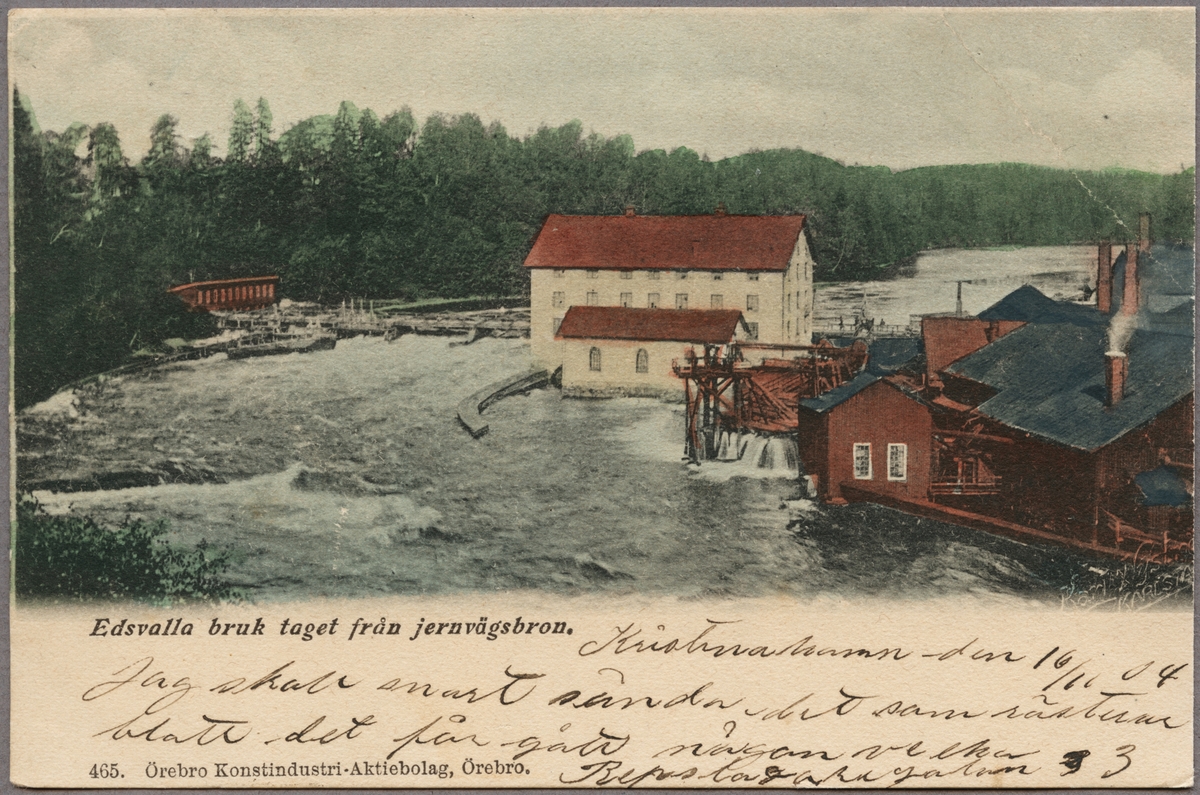 Edsvalla bruk taget från jernvägsbron.
Kristinahamn den 16/11 04
Jag skall snart sända det som
blott det får gått någon vecka
465. Örebro Konstindustri-Aktiebolag, Örebro.
Repslagaregatan 3